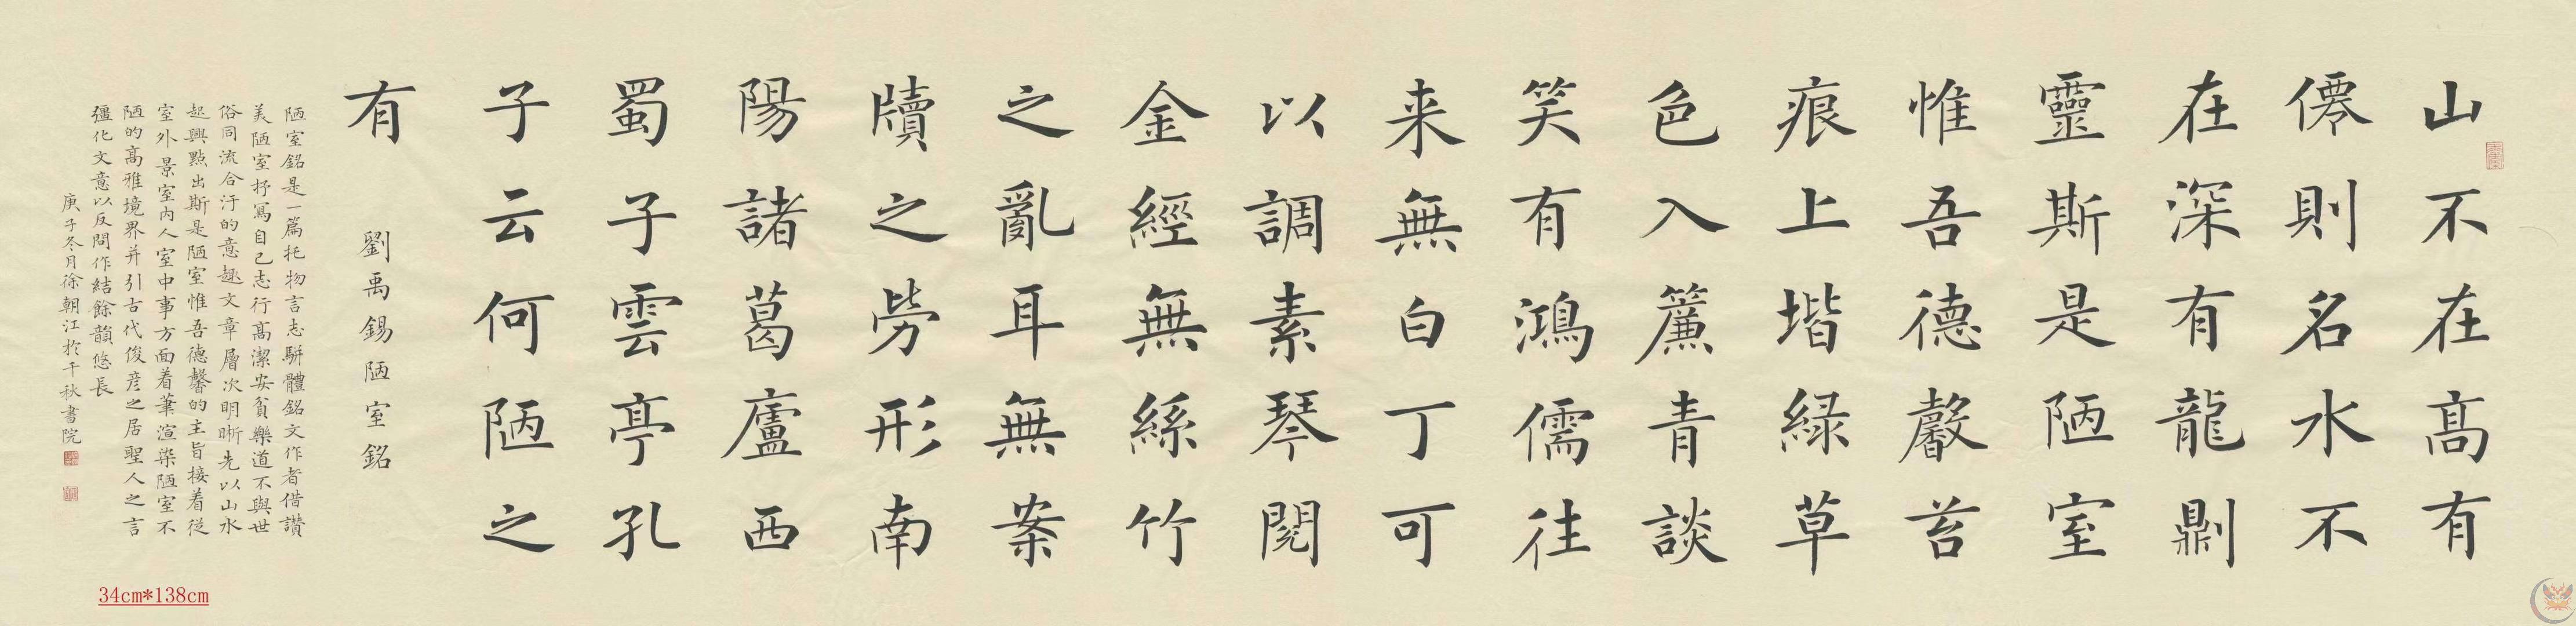 山不在髙有
僊則名水不
在深有龍𠟭
靈斯是陋室
惟吾德馨苔
痕上堦緑草
色入簾青談
笑有鴻儒往
来無白丁可
以調素琴閱
金經無絲竹
之亂耳無案
牘之勞形南
陽諸葛廬西
蜀子雲亭孔
子云何陋之
有
劉禹錫陋室銘
陋室銘是一篇托物言志駢體銘文作者借讚
美陋室抒寫自己志行髙潔安貧樂道不與世
俗同流合汙的意趣文章層次明晰先以山水
起興點出斯是陋室惟吾德馨的主旨接着從
室外景室内人室中事方面着筆渲染陋室不
陋的髙雅境界并引古代俊彦之居聖人之言
彊化文意以反問作結餘韻悠長
庚子冬月徐朝江於千秋書院
34cm*138cm